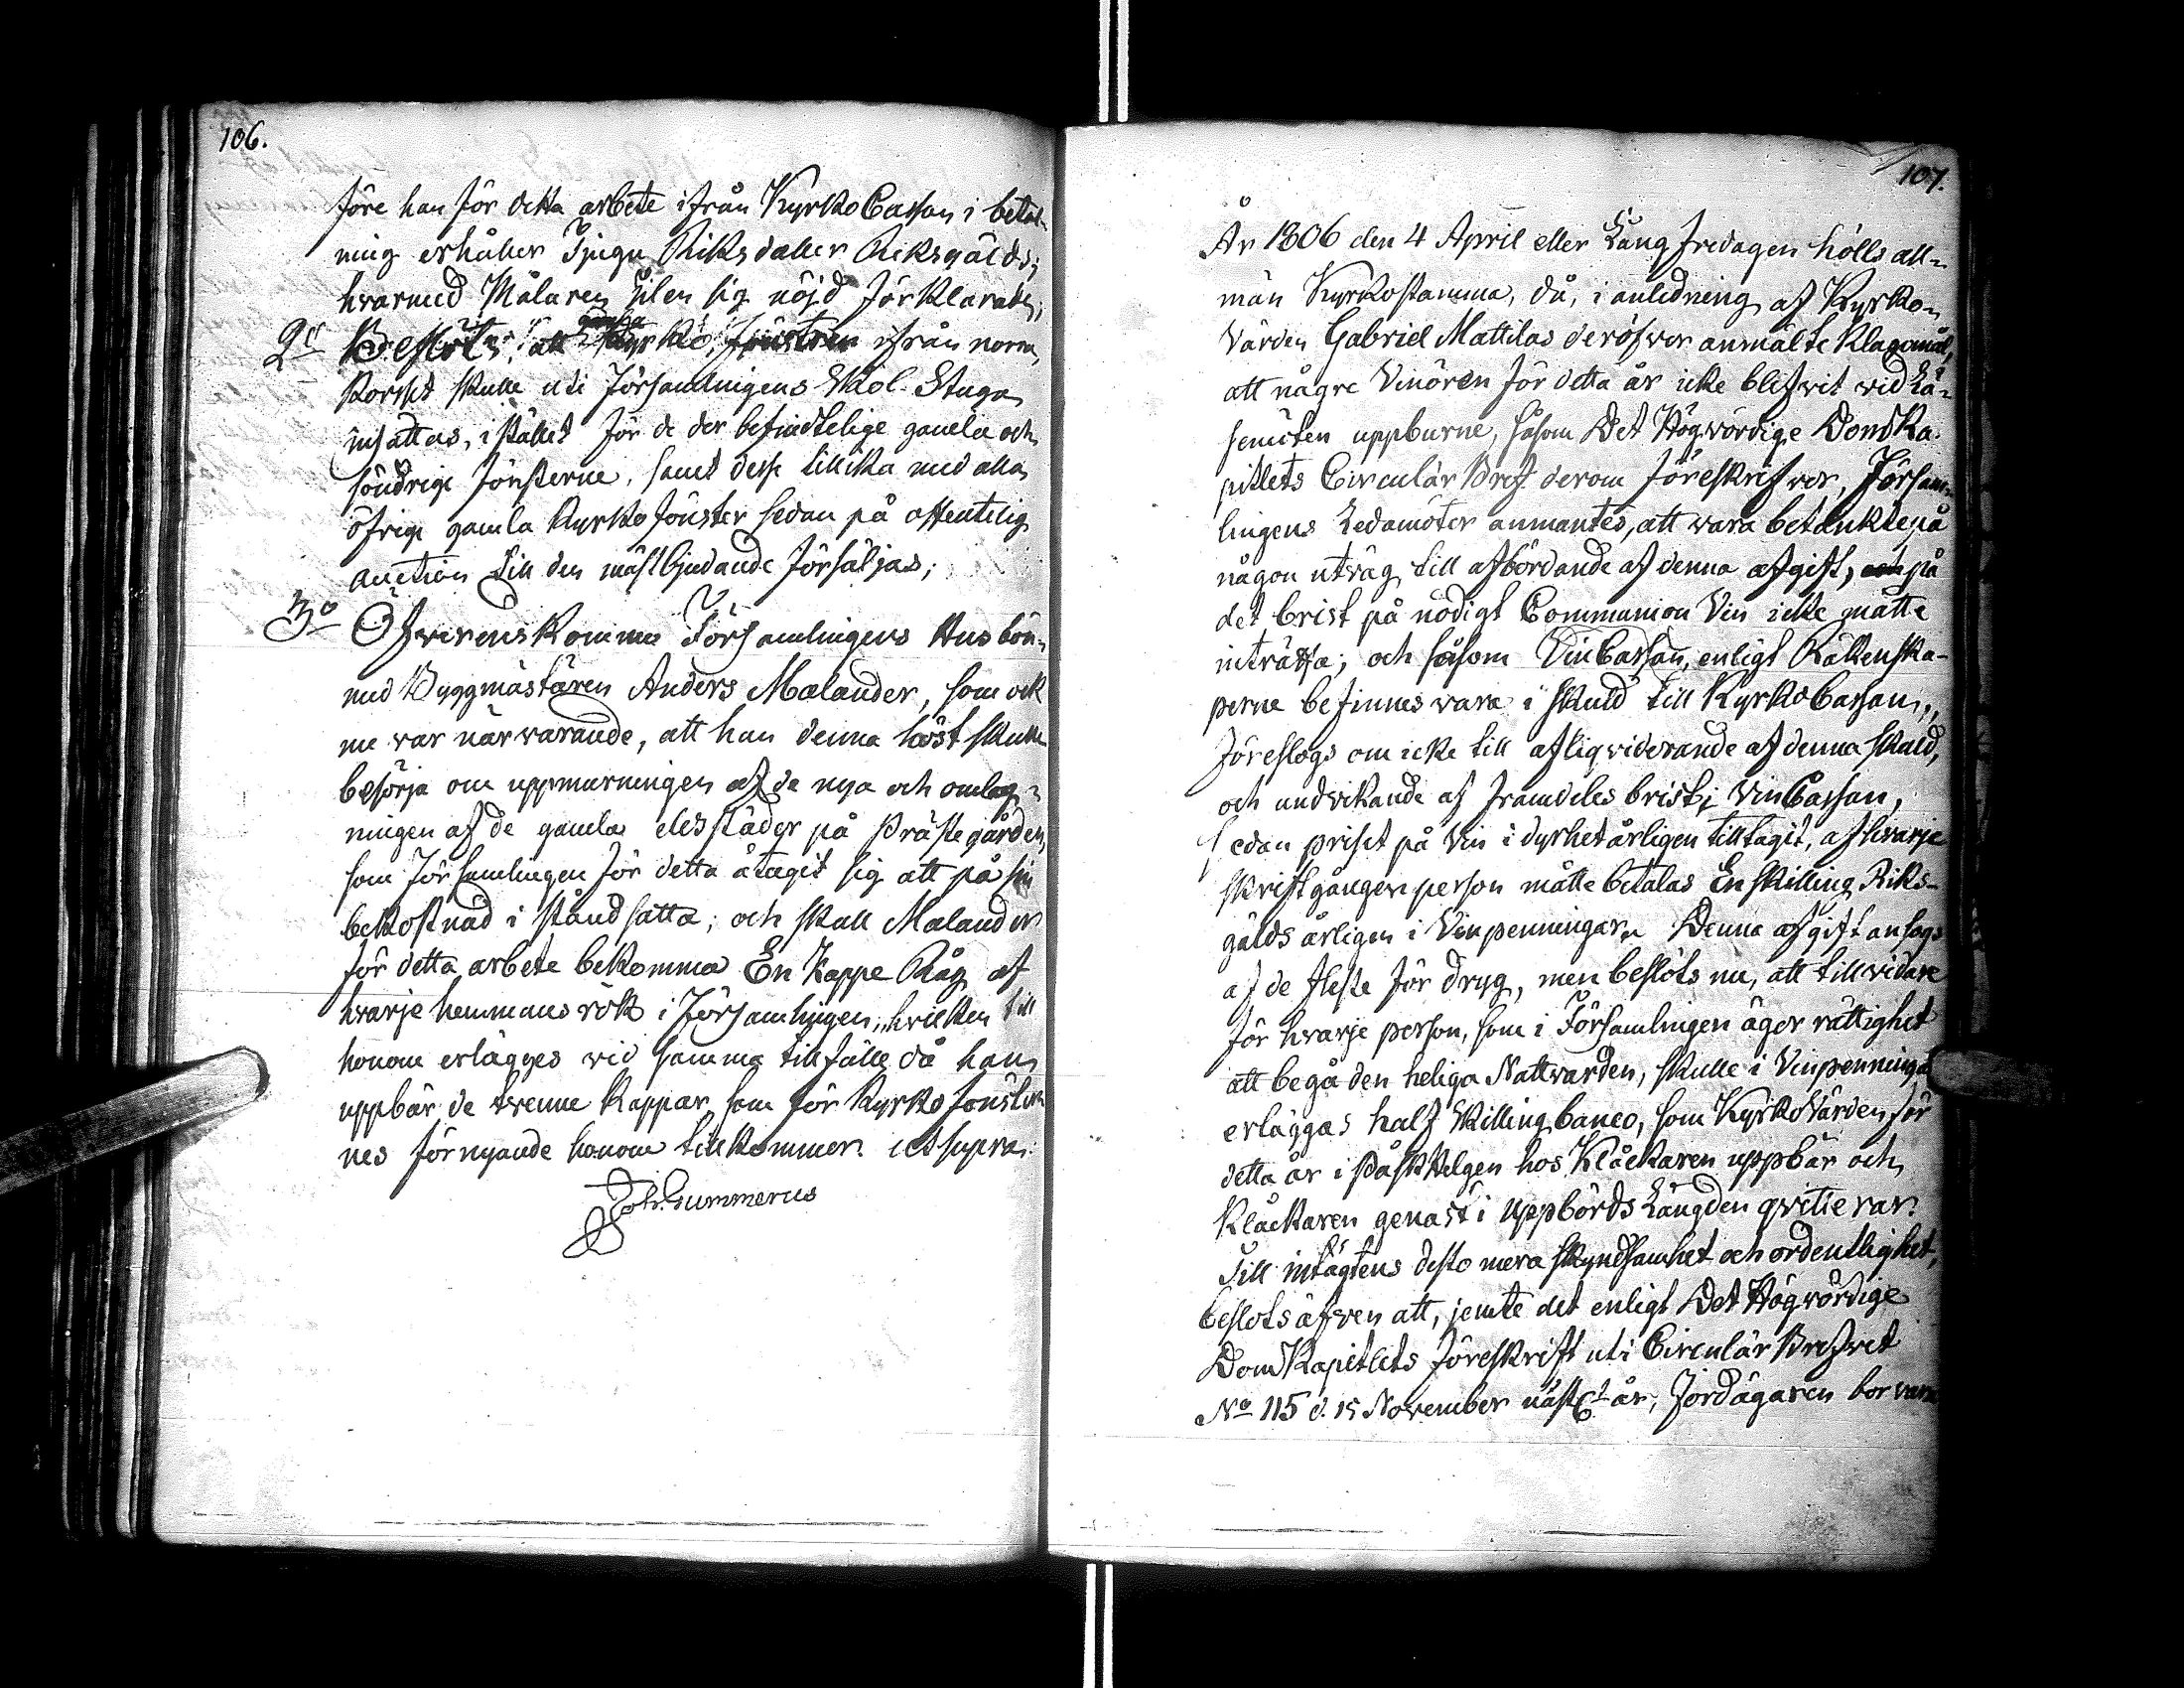 106.
före han för detta arbete ifrån KyrkoCassan i betal-
ning erhåller Tjugu Riksdaller Riksgälds;
hvarmed Målaren sig nöjd förklarade;
2o Beslöts: att gamla Kyrko fönstren ifrån norra
korset skulle uti församlingens Skol-Stuga
insättas, i stället för de der befindtelige gamla och
söndrige fönsterne, samt desse tillika med alla
öfrige gamla Kyrko fönster sedan på offentelig
auction till den mästbjudande försäljas;
3o Öfwerenskommo Församlingens Husbön-
med Byggmästaren Anders Malander, som ock
nu var närvarande, att han denna höst skulle
besörja om uppmurningen af de nya och omlag-
ningen af de gamla eldstäder på Prästegården,
som församlingen för detta åtagit sig att på sin
bekostnad i stånd sätta; och skall Malander
för detta arbete bekomma En Kappe Råg af
hvarje hemmans rök i Församlingen, hvilken till
honom erlägges vid samma tillfälle då han
uppbär de tvenne Kappar, som för Kyrko fönster-
nes förnyande honom tillkommer. ut supra.
Joh: Gummerus
107.
År 1806 den 4 April eller Långfredagen hölls all-
män Kyrkostämma, då, i anledning af Kyrko-
Värden Gabriel Mattilas deröfver anmälte Klagomål,
att någre Vinören för detta år icke blifvit vid Lä-
semöten uppburne, såsom Det Högvördige DomKa-
pitlets Circulär Bref derom föreskrifver, Försam-
lingens Ledamöter anmantes, att vara betänkte på
någon utväg till afbördande af denna afgift, på
det brist på nödigt Communion Vin icke måtte
inträffa; och såsom VinCassan, enligt Räkenska-
perne befinnes vara i skuld till KyrkoCassan,
föreslogs om icke till afliqviderande af denna skuld,
och undvikande af framdeles brist i VinCassan,
sedan priset på Vin i dyrhet årligen tilltagit, af hvarje
skriftgången person måtte betalas En Skilling Riks-
gälds årligen i Vinpenningar. Denna afgift ansågs
af de fleste för dryg, men beslöts nu, att tillvidare
för hvarje person, som i Församlingen äger rättighet
att begå den heliga Nattvarden, skulle i Vinpenningar
erläggas half Skilling banco, som KyrkoVärden för
detta år i Påskhelgen hos Klåckaren uppbär och
Klåckaren genast i Uppbörds Längden qvitterar.
Till intägtens desto mera skyndsamhet och ordentlighet,
beslöts äfven att, jemte det enligt Det Högvördige
DomKapitlets föreskrift uti Circulär Brefvet
No 115 d. 15 November näst år, Jordägaren bor vara